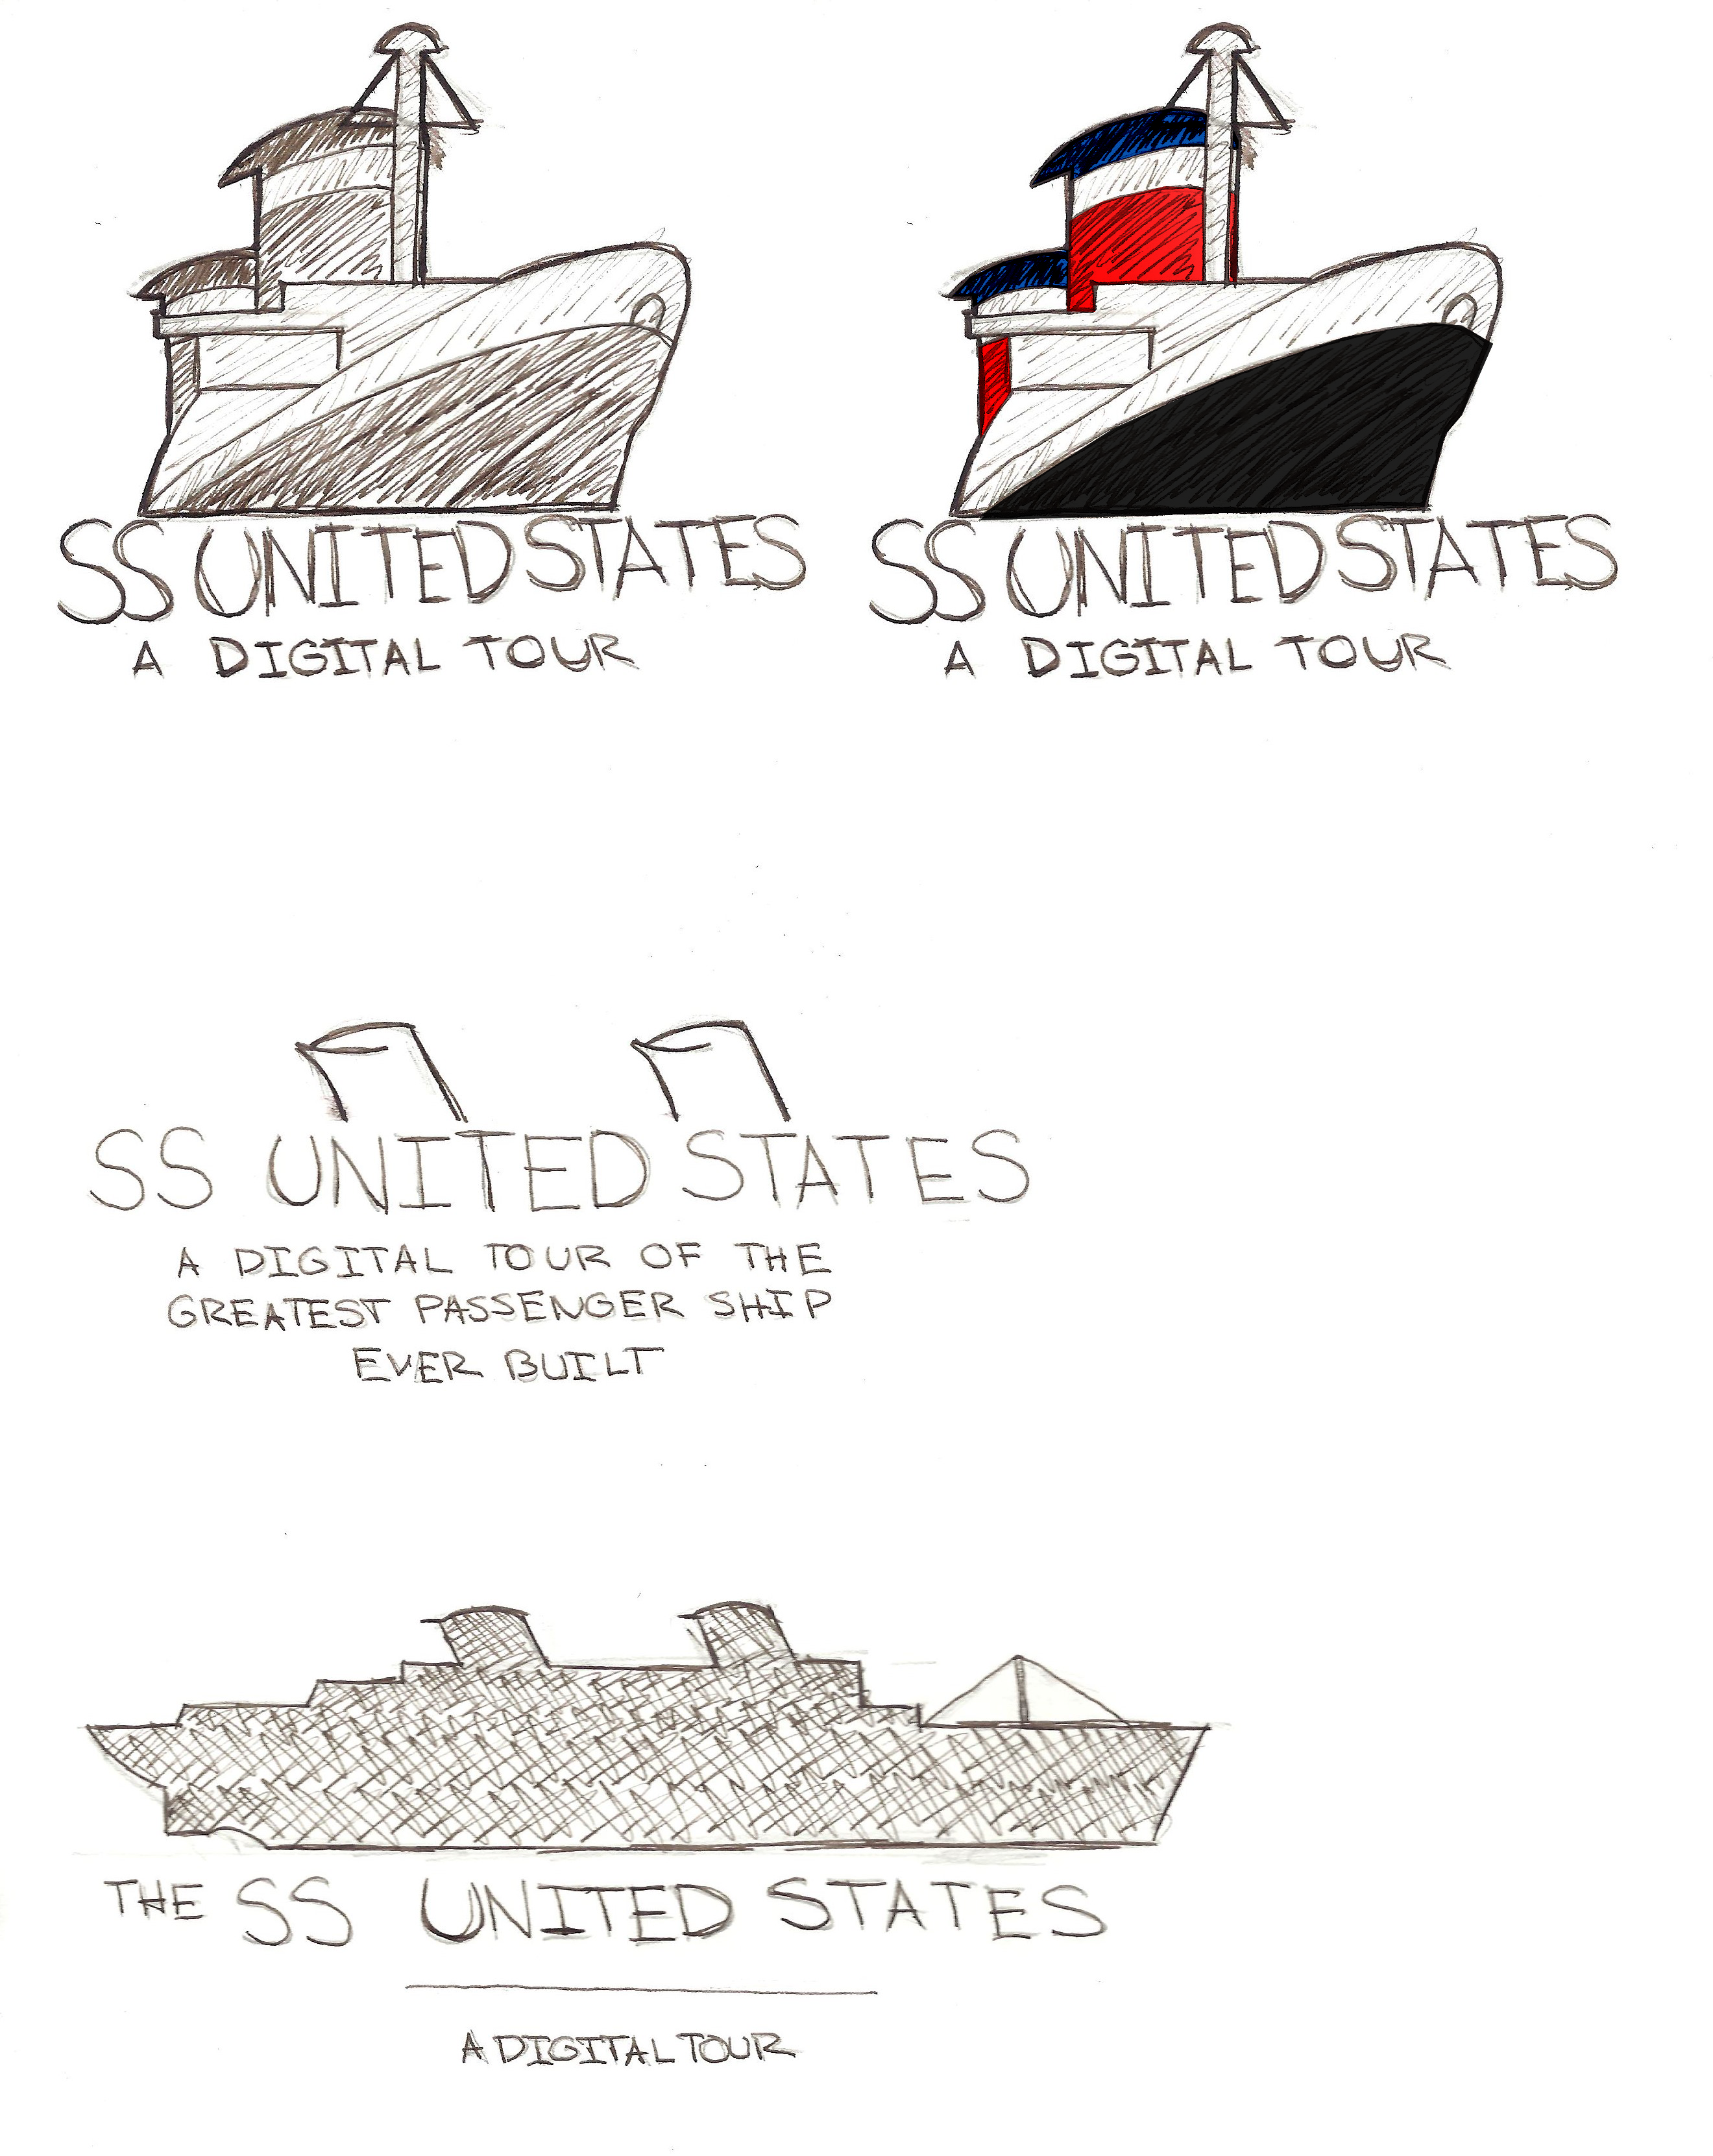 SS UNITED STATES
A DIGITAL TOUR
SS UNITED STATES
A DIGITAL TOUR
SS UNITED STATES
A DIGITAL TOUR OF THE
GREATEST PASSENGER SHIP
EVER BUILT
THE SS UNITED STATES
A DIGITAL TOUR